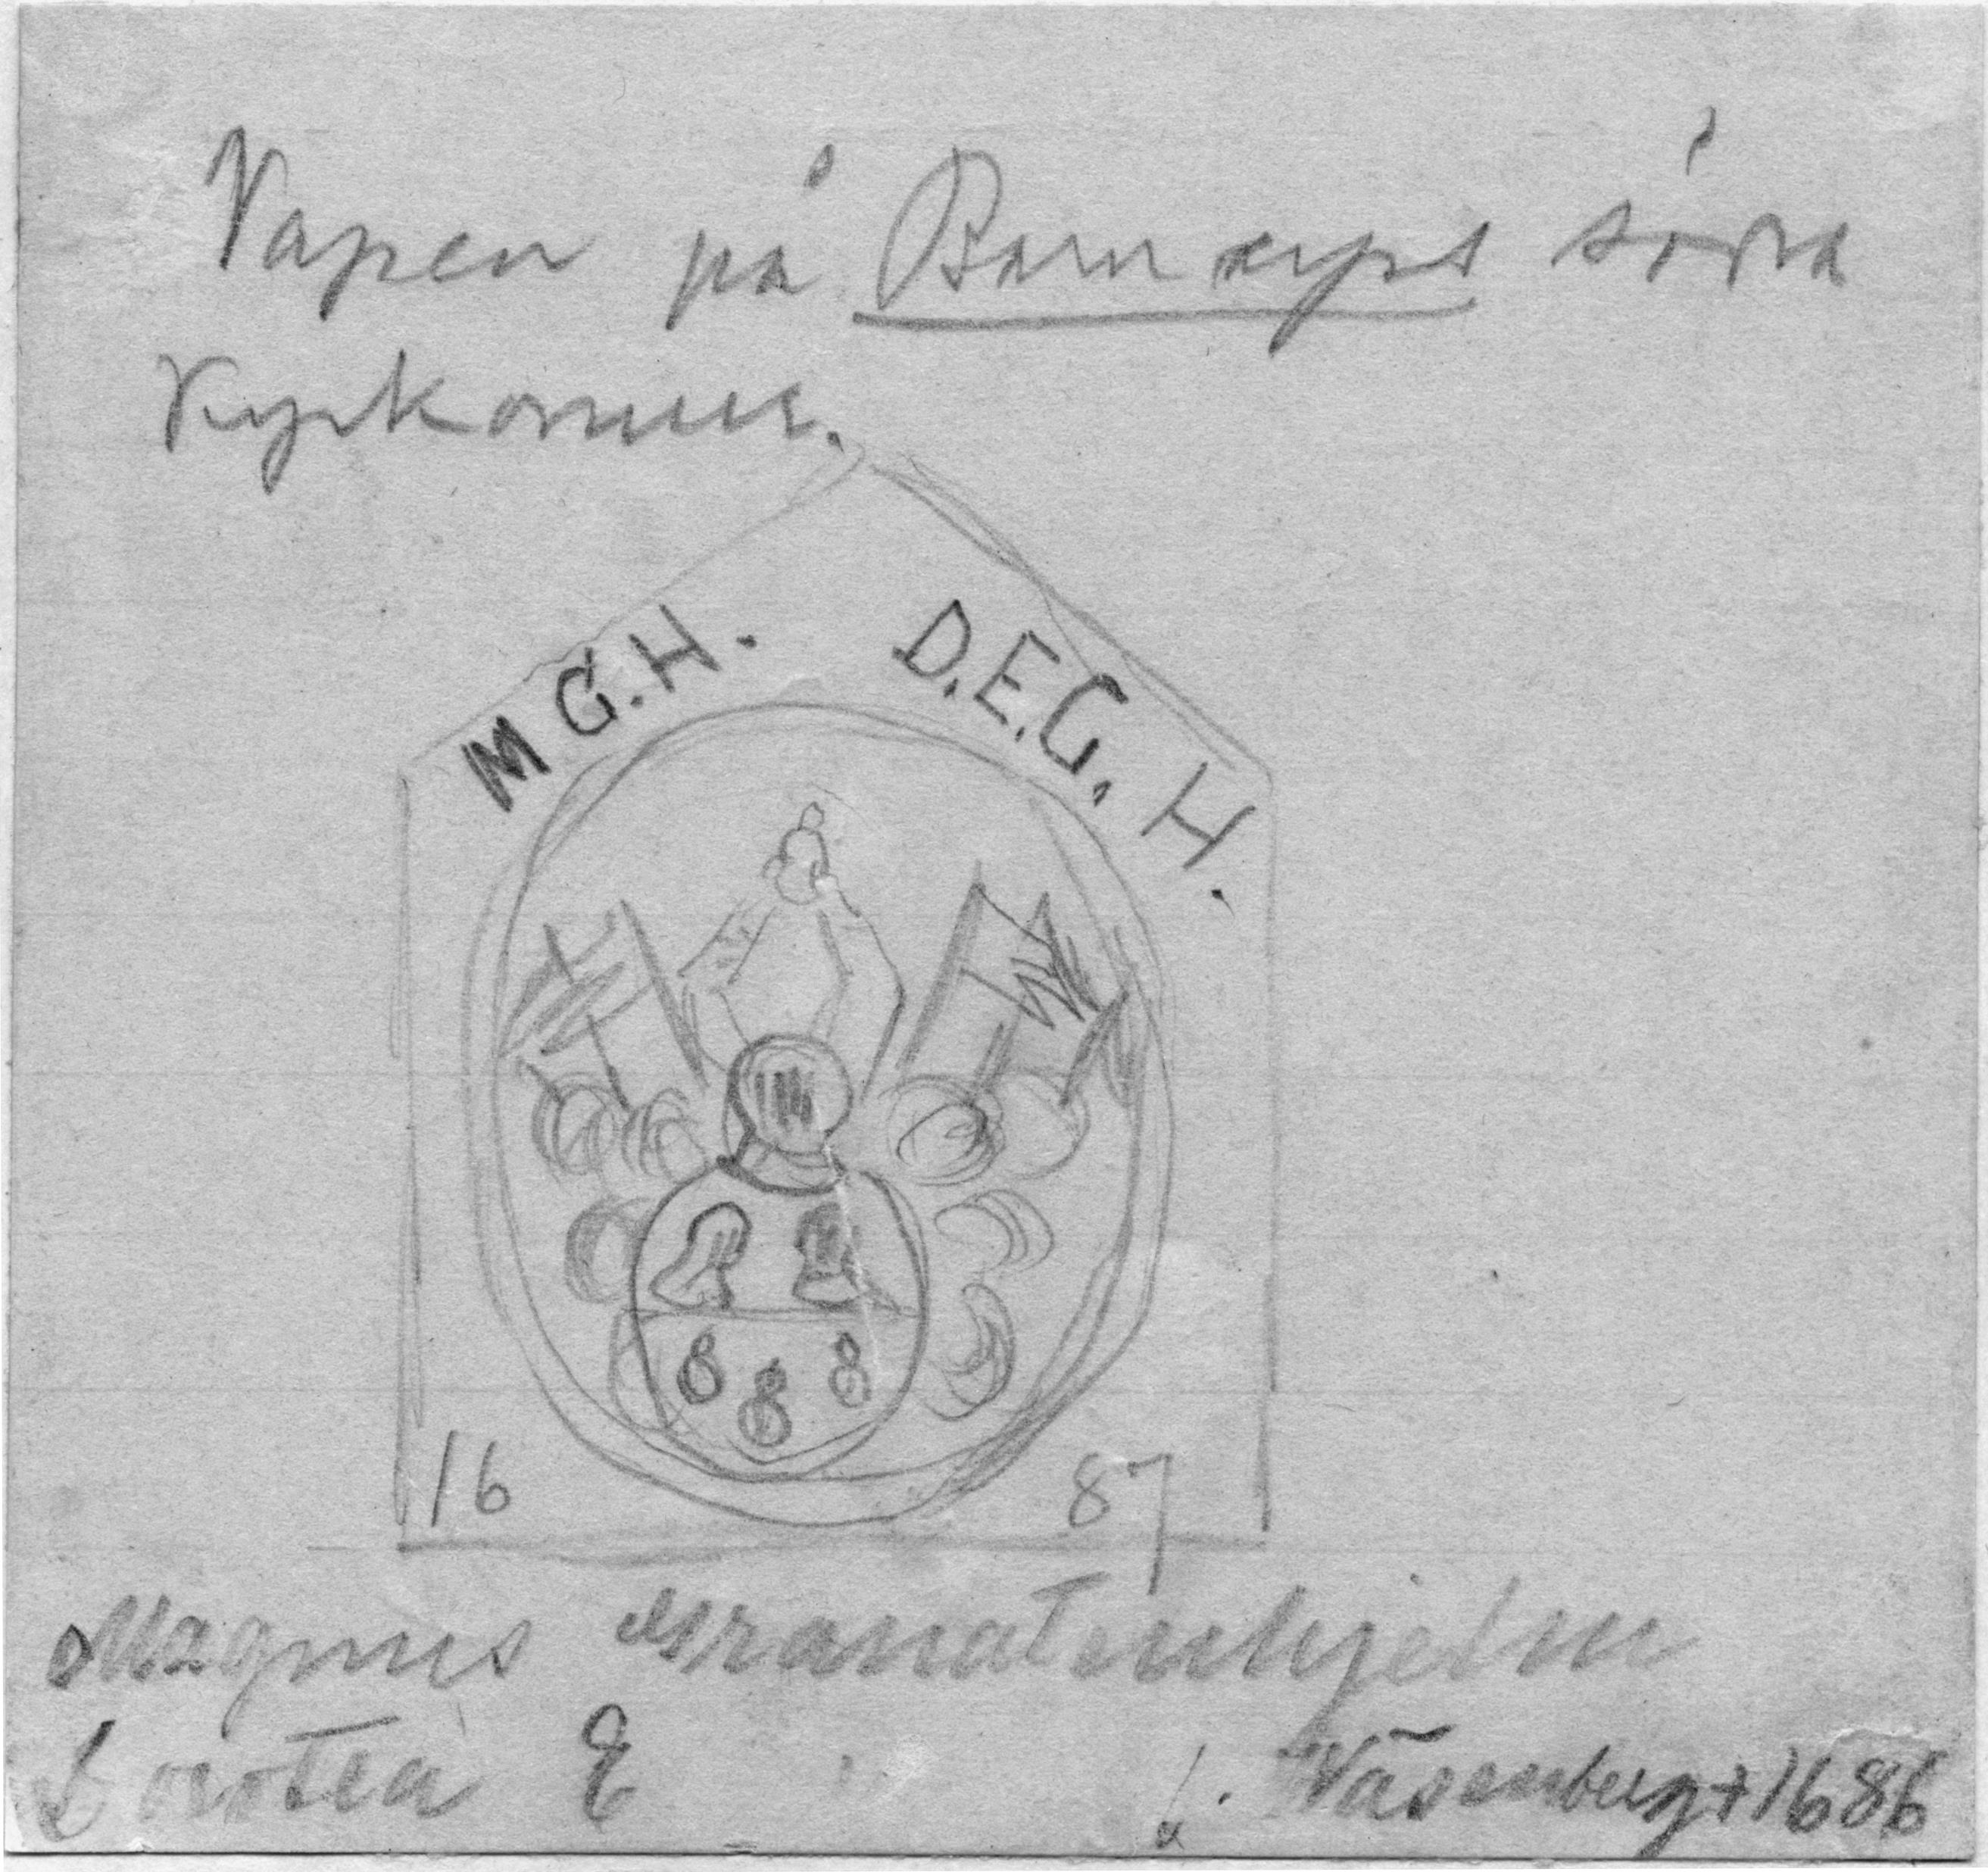 Vapen på Barnarps södra
Kyrkomur.
M G. H. D. E. G. H.
16 87
Magnus Granatenhjelm
Dorotea E f. Väsenberg + 1686